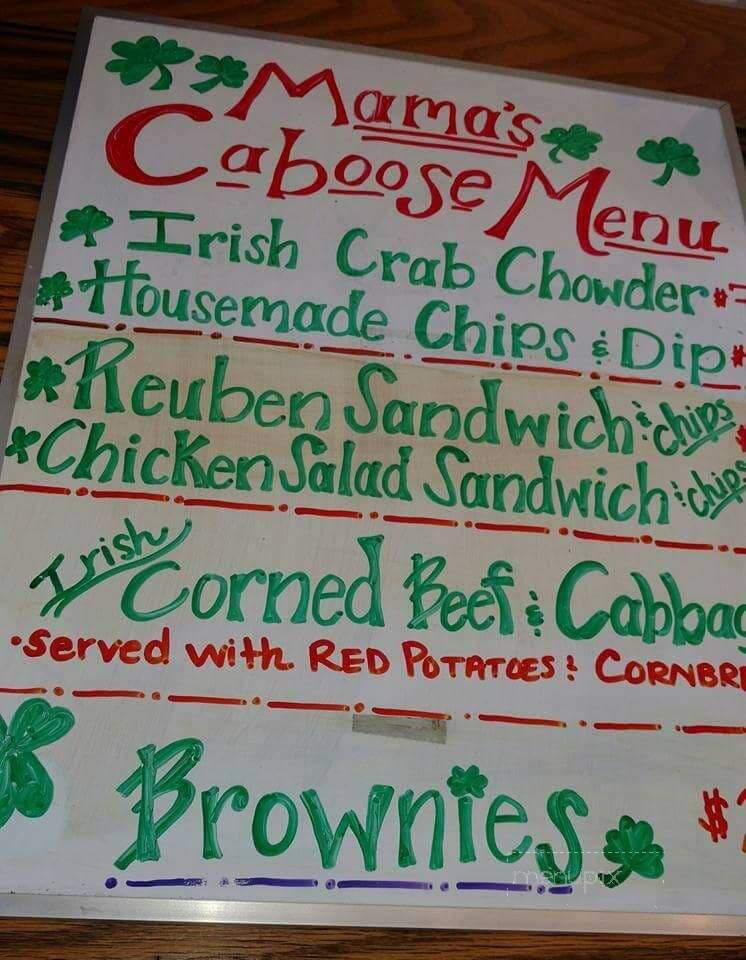 Mama's
Caboose Menu
Irish Crab Chowder
Housemade Chips & Dip
Reuben Sandwich & chips
Chicken Salad Sandwich & chips
Irish Corned Beef & Cabbag
• served with RED POTATOES & CORNBR
Brownies $
menupix